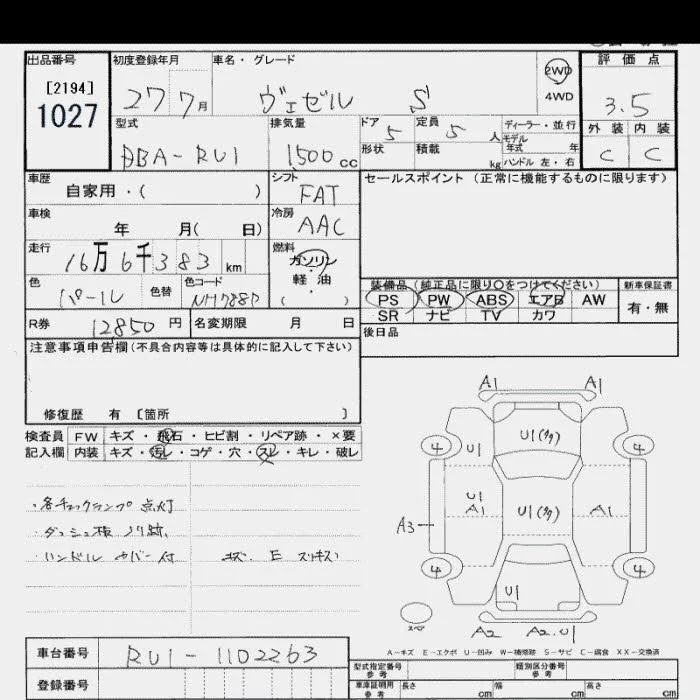 出品番号
[2194]
1027
初度登録年月
27 7月
車名・グレード
ヴェゼル S
2WD
4WD
評価点
3.5
外装 内装
C C
型式
DBA-RU1
排気量
1500cc
ドア 5
形状
定員 5人
積載 kg
ディーラー・並行
モデル年式 年
ハンドル 左・右
車歴
自家用・( )
シフト
FAT
セールスポイント (正常に機能するものに限ります)
車検
年 月( 日)
冷房
AAC
走行
16万6千383km
燃料
ガソリン
・
軽油
( ・ )
色
パール
色替
色コード
NH788P
装備品 (純正品に限り○をつけてください)
PS PW ABS エアB AW
SR ナビ TV カワ
新車保証書
有・無
R券 12850円
名変期限 月 日
後日品
注意事項申告欄(不具合内容等は具体的に記入して下さい)
修復歴 有 [箇所 ]
検査員 FW キズ・飛石・ヒビ割・リペア跡・×要
記入欄 内装 キズ・汚レ・コゲ・穴・スレ・キレ・破レ
・各チェックランプ点灯
・ダッシュ板 ノリ跡
・ハンドル カバー付
キズ. E スリキズ
A1 A1
U1(多)
4 U1 4
U1
A1 U1(多) A1
A3
4 4
U1
スペア
A2 A2.U1
A-キズ E-エクボ U-凹み W-補修跡 S-サビ C-腐食 XX-交換済
車台番号
RU1-1102263
登録番号
型式指定番号
参考
類別区分番号
参考
車庫証明用
参考
長さ cm 幅 cm 高さ cm